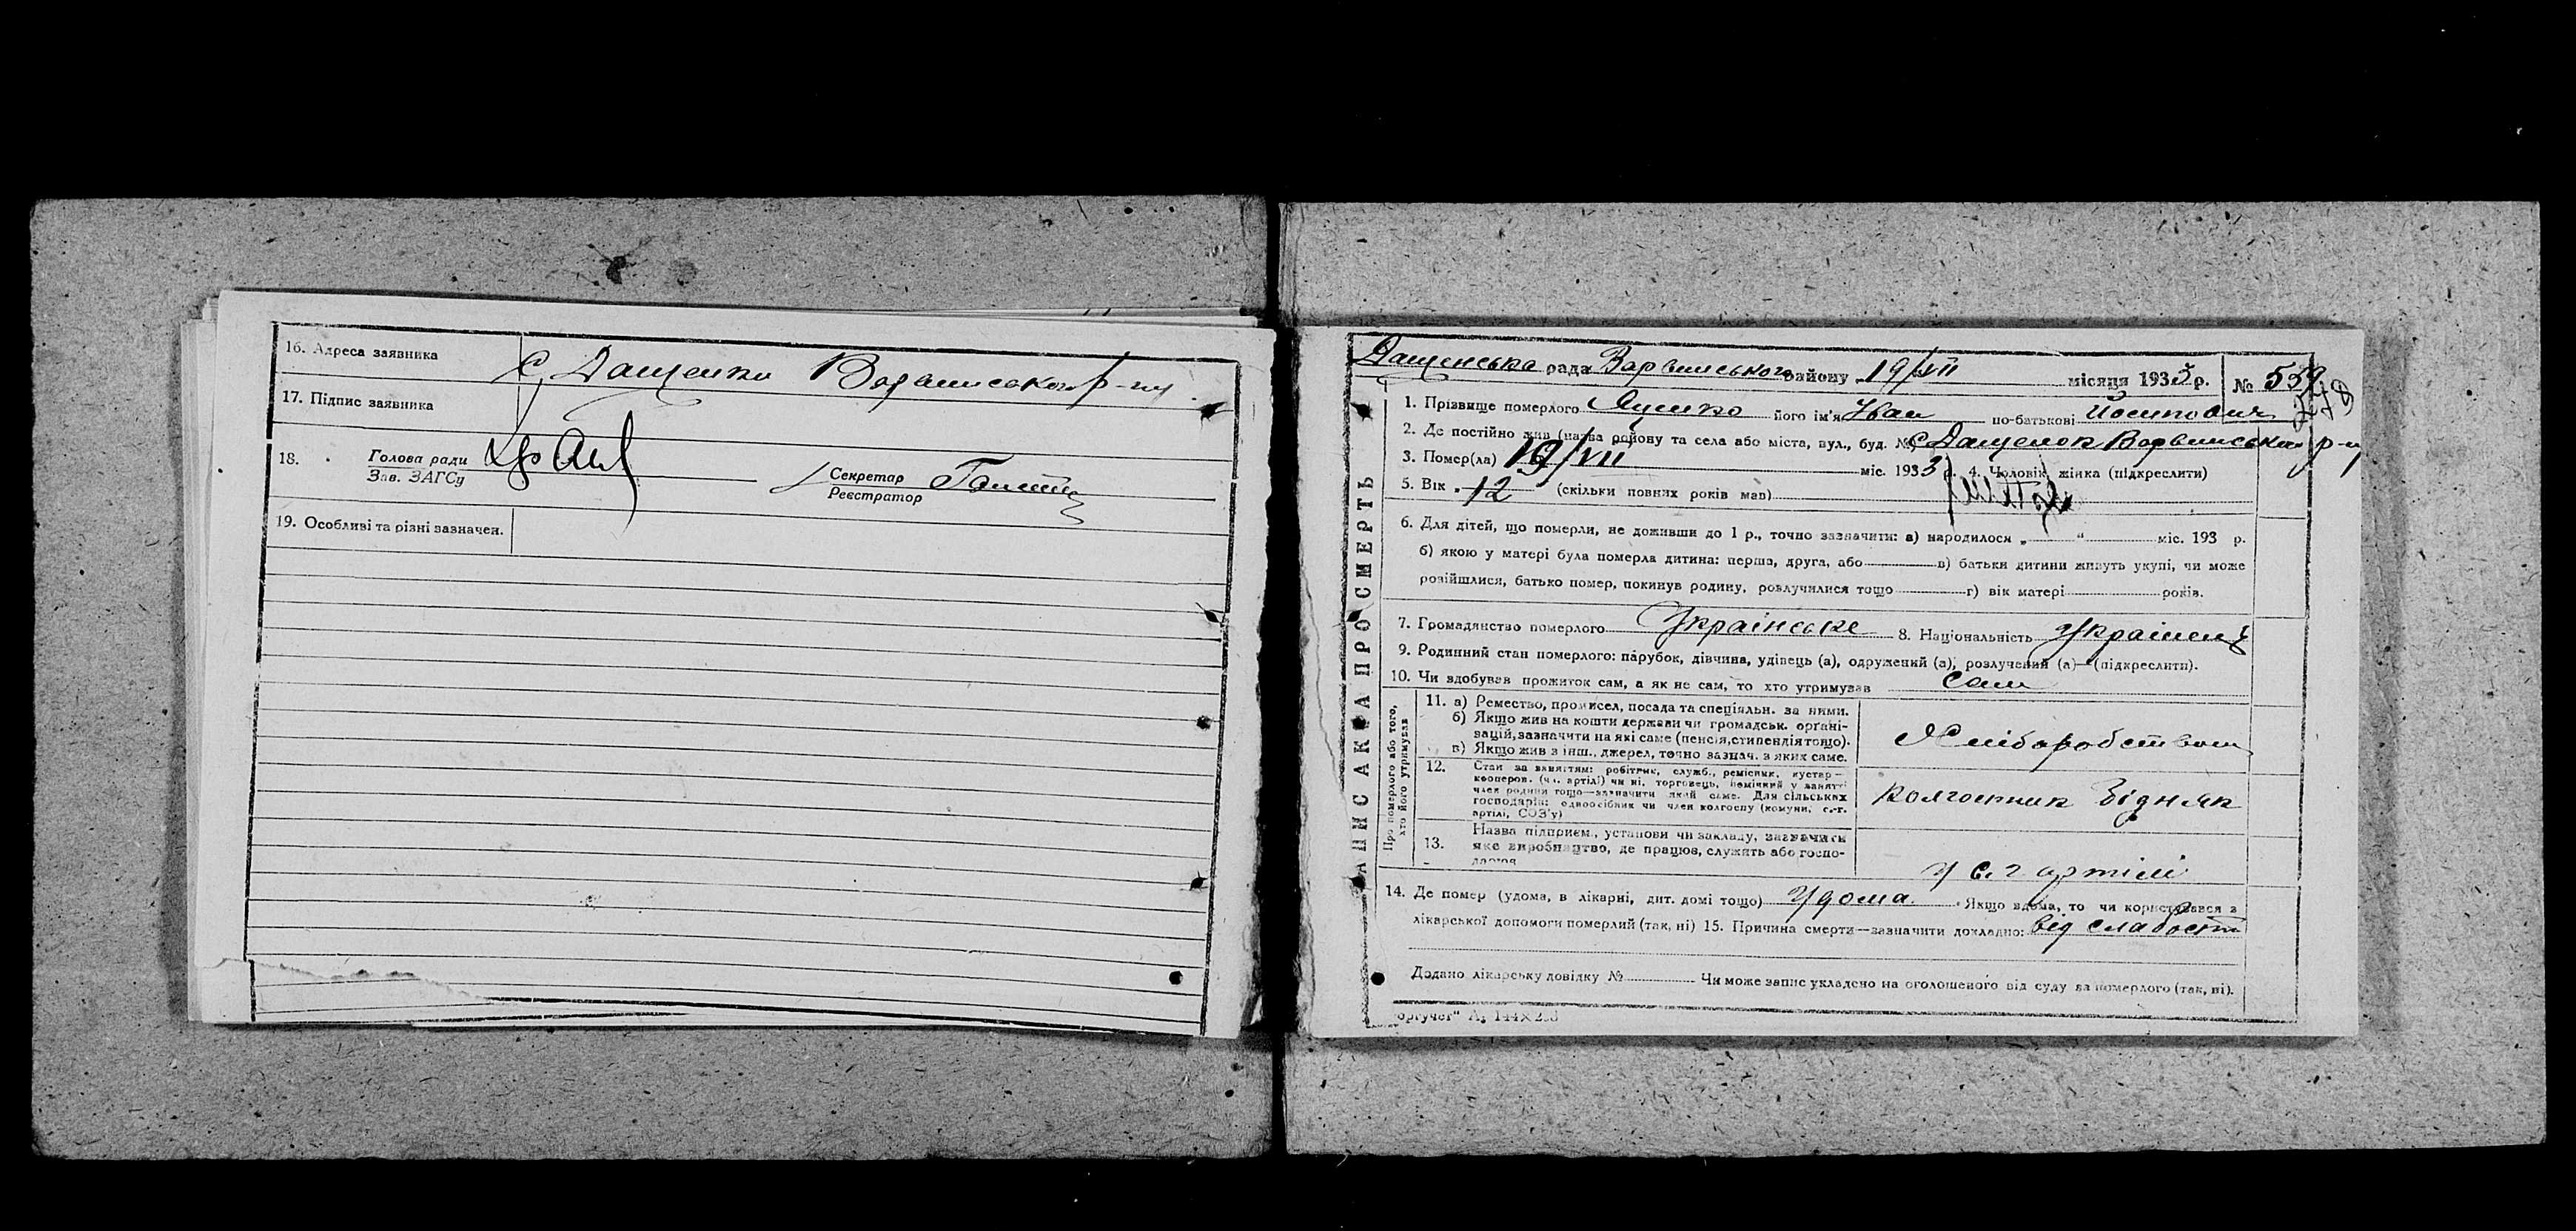 16. Адреса заявника с. Дащенки Варвинськог р-ну
17. Підпис заявника
18. Голова ради
Зав. ЗАГСу
Секретар
Реєстратор
19. Особливі та різні зазначен.
Дащенська рада Варвинського району 19/VII місяця 1933 р. № 559
1. Прізвище померлого Яценко його ім'я Іван по-батькові Йосипович
2. Де постійно жив (назва району та села або міста, вул., буд. № с. Дащенок Варвинського р-ну
3. Помер(ла) 19/VII міс. 1933 р. 4. Чоловік, жінка (підкреслити)
5. Вік 12 (скільки повних років мав)
6. Для дітей, що померли, не доживши до 1 р., точно зазначити: а) народилося „ “ міс. 193 р.
б) якою у матері була померла дитина: перша, друга, або в) батьки дитини живуть укупі, чи може
розійшлися, батько помер, покинув родину, розлучилися тощо г) вік матері років.
7. Громадянство померлого Українське 8. Національність Українець
9. Родинний стан померлого: парубок, дівчина, удівець (а), одружений (а), розлучений (а)—(підкреслити).
10. Чи здобував прожиток сам, а як не сам, то хто утримував сам
Про померлого або того,
хто його утримував
11. а) Ремество, промисел, посада та спеціяльн. за ними.
б) Якщо жив на кошти держави чи громадськ. органі-
зацій, зазначити на які саме (пенсія, стипендія тощо).
в) Якщо жив з інш. джерел, точно зазнач. з яких саме.
Хліборобством
12. Стан за заняттям: робітник, служб., ремісник, кустар—
кооперов. (чл. артілі) чи ні, торговець, помічний у занятті
член родини тощо—зазначити який саме. Для сільських
господарів: одноосібник чи член колгоспу (комуни, с.-г.
артілі, СОЗ'у)
Колгоспник бідняк
13. Назва підприєм., установи чи закладу, зазначити
яке виробництво, де працює, служить або госпо-
дарює
у с.г артілі
14. Де помер (удома, в лікарні, дит. домі тощо) Удома. Якщо вдома, то чи користувався з
лікарської допомоги померлий (так, ні) 15. Причина смерти—зазначити докладно: від слабости
Додано лікарську довідку № Чи може запис укладено на оголошеного від суду за померлого (так, ні).
ЗАПИС АКТА ПРО СМЕРТЬ